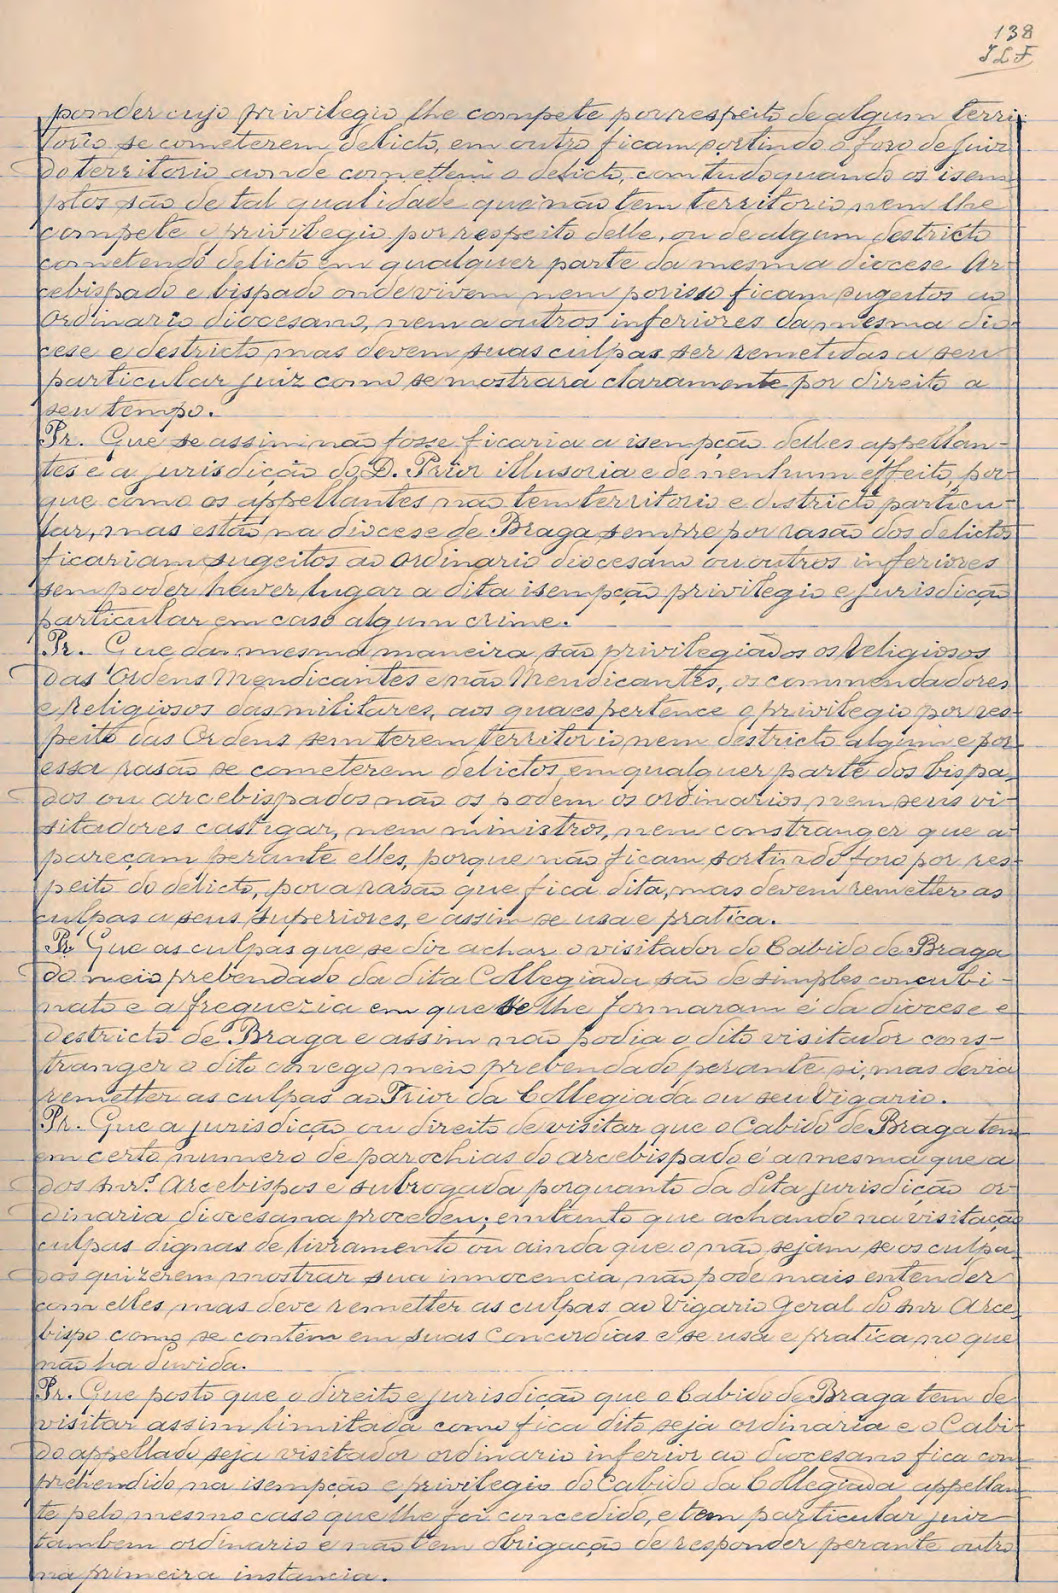 138
J L F
ponder cujo privilegio lhe compete por respeito de algum terri-
torio se cometerem delicto, em outro ficam sortindo o foro de juiz
do territorio aonde comettem o delicto, comtudo quando os isem-
ptos são de tal qualidade que não tem territorio nem lhe
compete o privilegio por respeito delle, ou de algum destricto
cometendo delicto em qualquer parte da mesma diocese Ar-
cebispado e bispado onde vivem nem por isso ficam sugeitos ao
Ordinario diocesano, nem a outros inferiores da mesma dio-
cese e destricto mas devem suas culpas ser remetidas a seu
particular juiz como se mostrará claramente por direito a
seu tempo.
Pr. Que se assim não fosse ficaria a isempção delles appellan-
tes e a jurisdição do D. Prior illusoria e de nenhum effeito, por-
que como os appellantes não tem territorio e destricto particu-
lar, mas estão na diocese de Braga sempre por rasão dos delictos
ficariam sugeitos ao Ordinario diocesano ou outros inferiores
sem poder haver lugar a dita isempção privilegio e jurisdicção
particular em caso algum crime.
Pr. Que da mesma maneira são privilegiados os Religiosos
das Ordens Mendicantes e não Mendicantes, os commendadores
e Religiosos das militares, aos quaes pertence o privilegio por res-
peito das Ordens sem terem territorio nem destricto algum e por
essa rasão se cometerem delictos em qualquer parte dos bispa-
dos ou arcebispados não os podem os ordinarios, nem seus vi-
sitadores castigar, nem ministros, nem constranger que a-
pareçam perante elles, porque não ficam sortindo foro por res-
peito do delicto, por a rasão que fica dita, mas devem remetter as
culpas a seus superiores, e assim se usa e pratica.
Pr Que as culpas que se diz achar o visitador do Cabido de Braga
do meio prebendado da dita Collegiada são de simples concubi-
nato e a freguezia em que se lhe formaram é da diocese e
destricto de Braga e assim não podia o dito visitador cons-
tranger o dito conego meio prebendado perante si, mas devia
remetter as culpas ao Prior da Collegiada ou seu Vigario.
Pr. Que a jurisdição ou direito de visitar que o Cabido de Braga tem
em certo numero de parochias do arcebispado é a mesma que a
dos snrs. Arcebispos e subrogada porquanto da dita jurisdição or-
dinaria diocesana procedeu; emtanto que achando na visitação
culpas dignas de livramento ou ainda que o não sejam se os culpa-
dos quizerem mostrar sua innocencia não pode mais entender
com elles mas deve remetter as culpas ao Vigario Geral do snr Arce-
bispo como se contém em suas Concordias e se usa e pratica no que
não ha duvida.
Pr. Que posto que o direito e jurisdicção que o Cabido de Braga tem de
visitar assim limitada como fica dito seja ordinaria e o Cabi-
do appellado seja visitador ordinario inferior ao diocesano fica com-
prehendido na isempção e privilegio do Cabido da Collegiada appellan-
te pelo mesmo caso que lhe foi concedido, e tem particular juiz
tambem ordinario e não tem obrigação de responder perante outro
na primeira instancia.